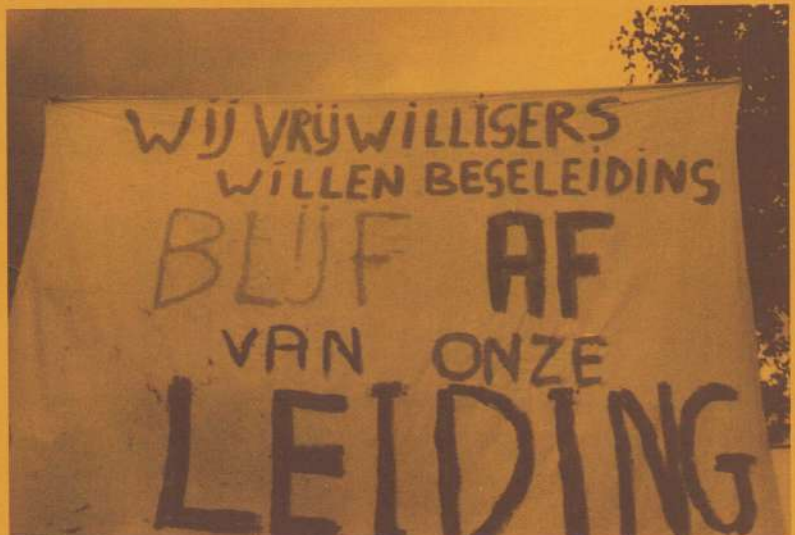 WIJ VRIJWILLIGERS
WILLEN BEGELEIDING
BLIJF AF
VAN ONZE
LEIDING